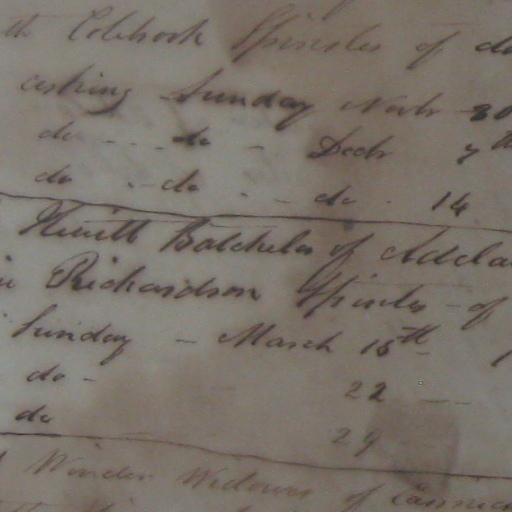 th Colebrook Spinster of do
asking Sunday Novbr 30
do - - - do - Decbr 7th
do - do - - do 14
Hewitt Batcheler of Adela
Richardson Spinster of
Sunday - March 15th
do - 22
do 29
Winder Widower of